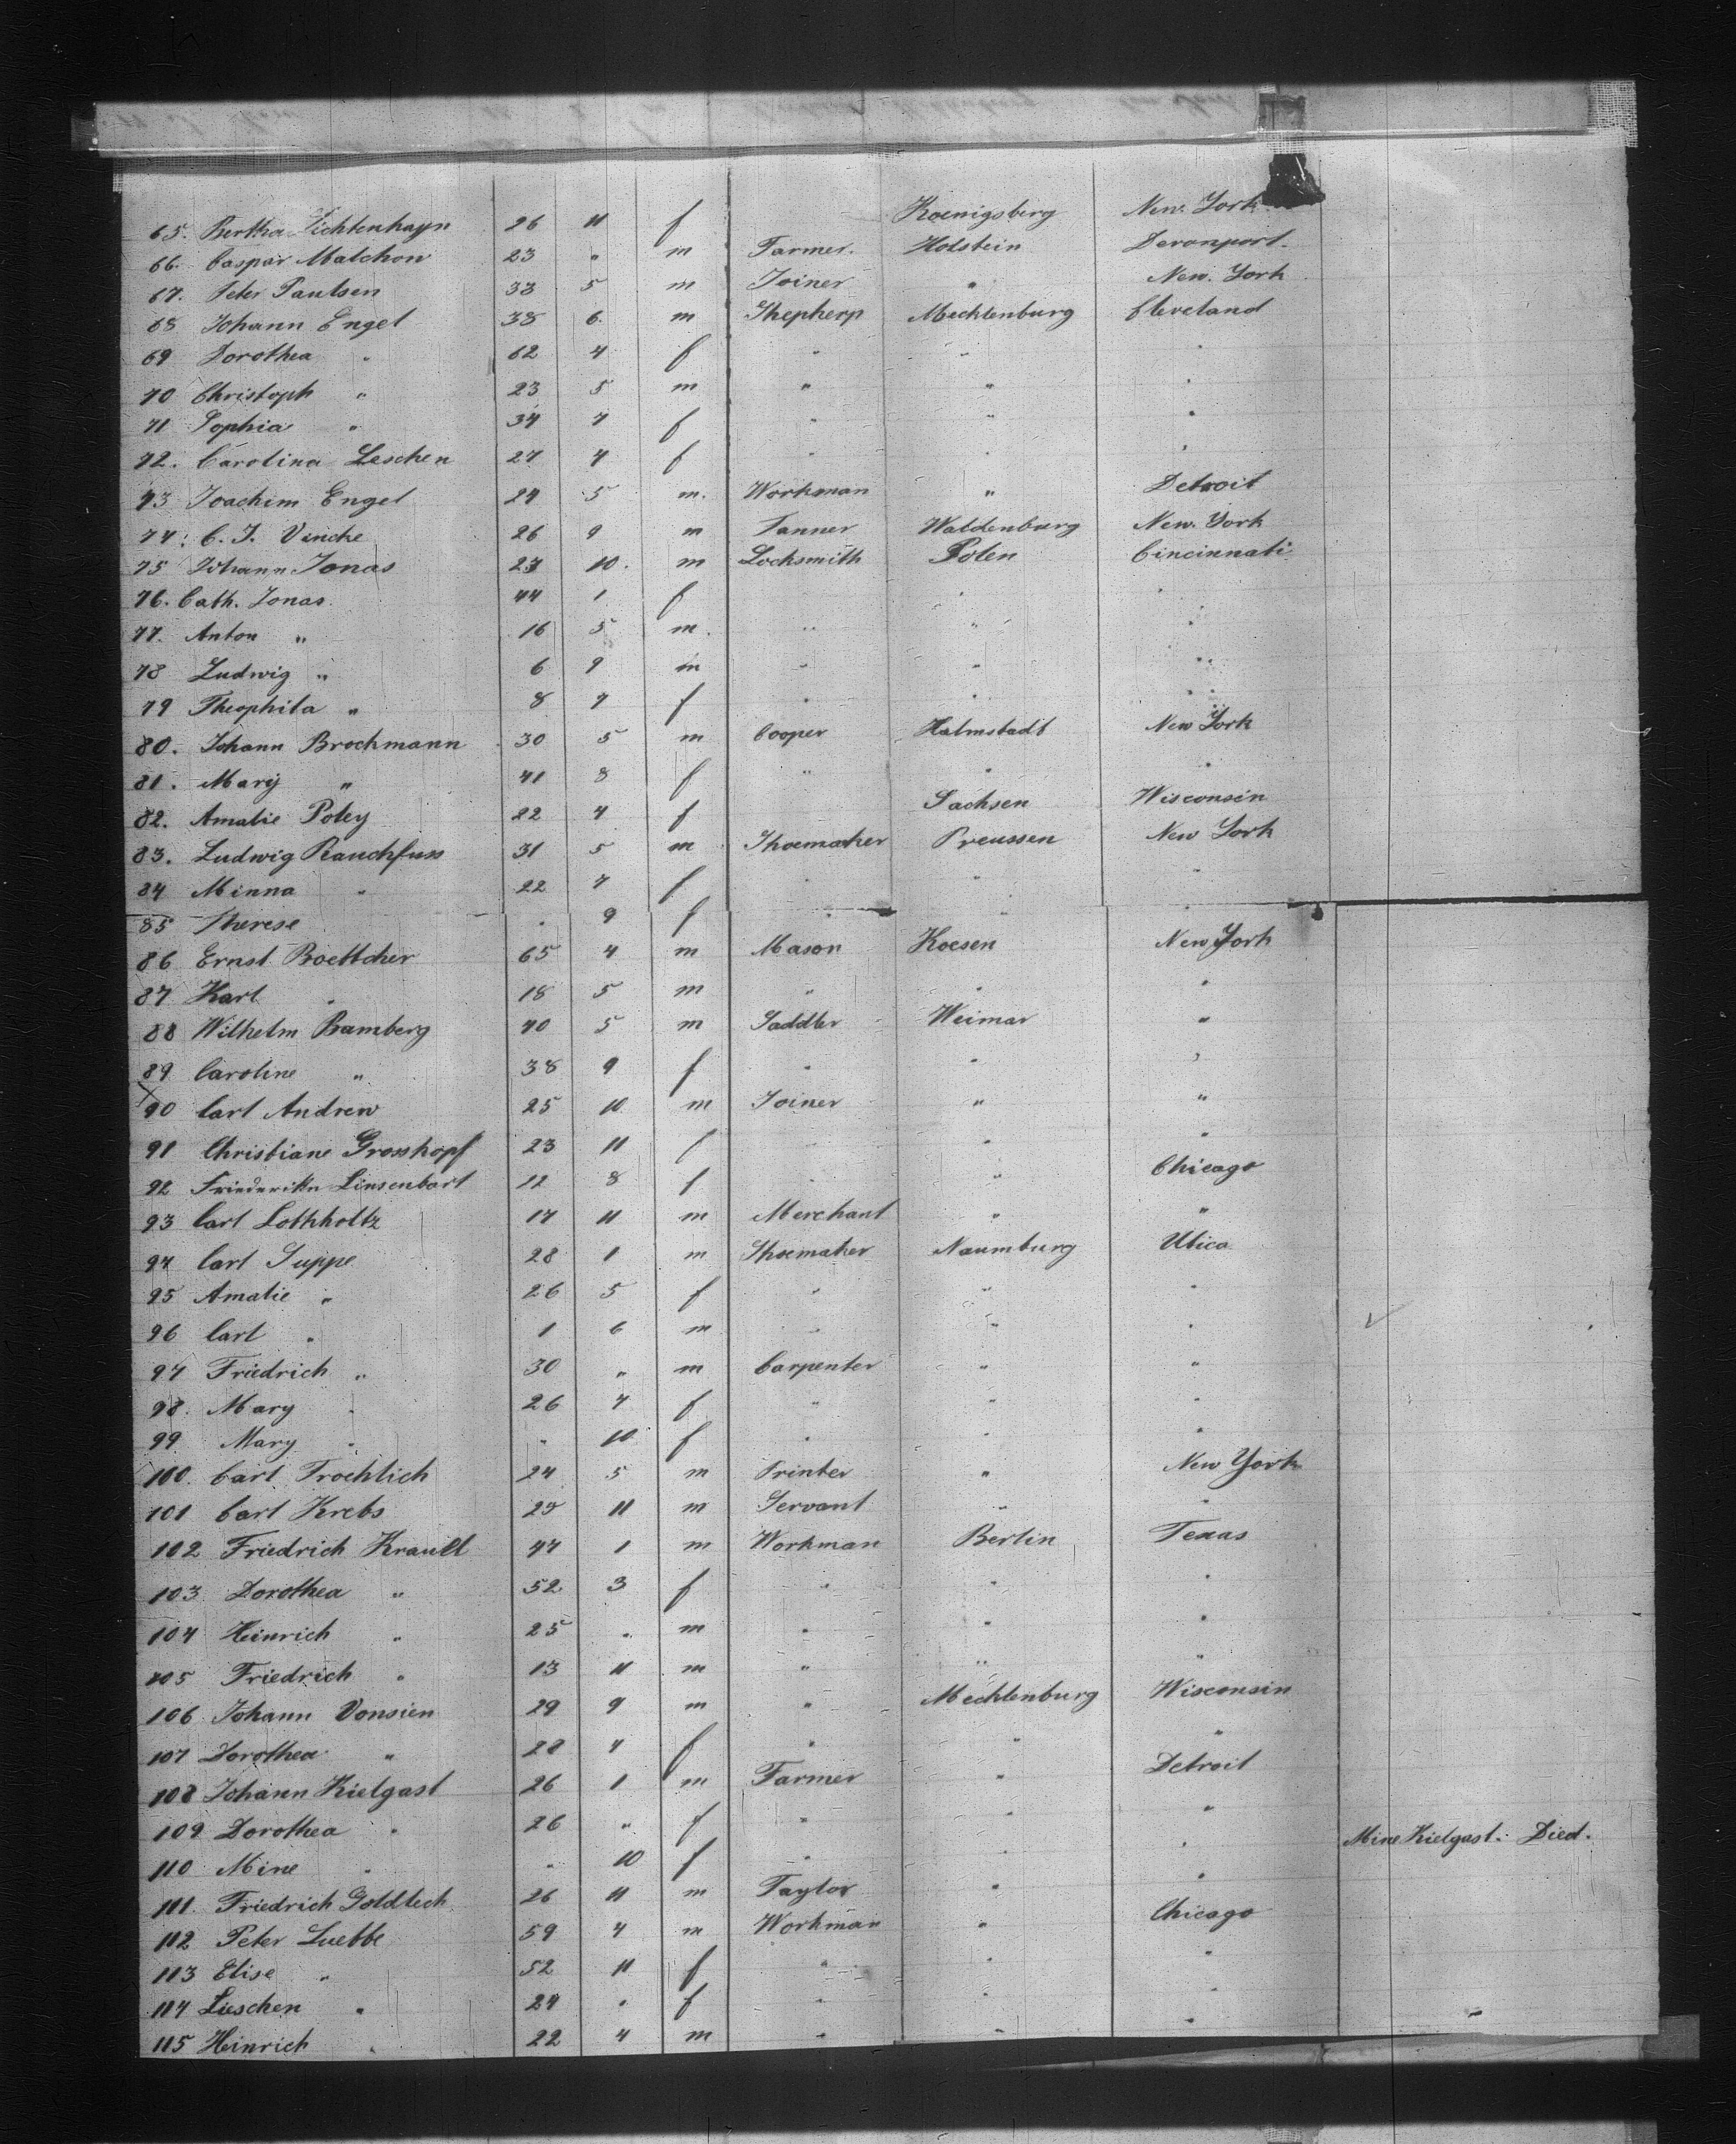 65. Bertha Lichtenhayn 26 11 f Koenigsberg New. York
66. Caspar Malchow 23 " m Farmer. Holstein Davenport.
67. Peter Paulsen 33 5 m Joiner " New. York
68 Johann Engel 38 6. m Shepherp Mecklenburg Cleveland
69 Dorothea " 62 4 f " " "
70 Christoph " 23 5 m " " "
71 Sophia " 34 7 f " " "
72. Carolina Leschen 27 4 f " " "
73 Joachim Engel 24 5 m. Workman " Detroit
74. C. J. Vincke 26 9 m Tanner Waldenburg New. York
75 Johann Jonas 27 10. m Locksmith Polen Cincinnati
76. Cath. Jonas. 44 1 f " "
77. Anton " 16 5 m. " " "
78 Ludwig " 6 9 m " " "
79 Theophila " 8 7 f " " "
80. Johann Brockmann 30 5 m Cooper Halmstadt New York
81. Mary " 41 8 f " " "
82. Amalie Poley 22 4 f Sachsen Wisconsin
83. Ludwig Rauchfuss 31 5 m Shoemaker Preussen New York
84 Minna " 22 7 f " " "
85 Therese " 9 f " " "
86 Ernst Boettcher 65 4 m Mason Koesen New York
87 Karl " 18 5 m " " "
88 Wilhelm Bamberg 40 5 m Saddler Weimar "
89 Caroline " 38 9 f " " "
90 Carl Andrew 25 10 m Joiner " "
91 Christiane Grosskopf 23 11 f " "
92 Friederike Linsenbart 12 8 f " Chicago
93 Carl Lothholtz 17 11 m Merchant " "
94 Carl Suppe 28 1 m Shoemaker Naumburg Utica
95 Amalie " 26 5 f " " "
96 Carl " 1 6 m " " "
97 Friedrich " 30 " m Carpenter " "
98. Mary " 26 7 f " " "
99 Mary " " 10 f " " "
100. Carl Froehlich 24 5 m Printer " New York
101 Carl Krebs 11 m Servant " "
102 Friedrich Krault 47 1 m Workman Berlin Texas
103 Dorothea " 52 3 f " " "
104 Heinrich " 25 " m " " "
105 Friedrich " 13 11 m " " "
106 Johann Vonsien 29 9 m " Mecklenburg Wisconsin
107 Dorothea " 28 4 f " " "
108 Johann Kielgast 26 1 m Farmer " Detroit
109 Dorothea " 26 " f " " "
Mine Kielgast. Died.
110 Mine " " 10 f " " "
111. Friedrich Goldtech 26 11 m Taylor " "
112 Peter Luebbe 59 4 m Workman " Chicago
113 Elise " 52 11 f " " "
114 Lieschen " 24 " f " " "
115 Heinrich " 22 4 m " " "